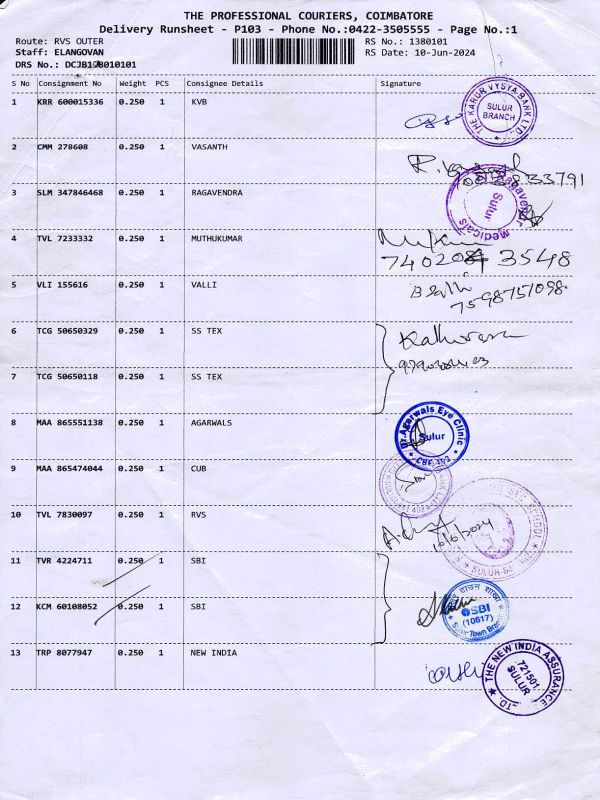 THE PROFESSIONAL COURIERS, COIMBATORE
Delivery Runsheet - P103 - Phone No.:0422-3505555 - Page No.:1
Route: RVS OUTER RS No.: 1380101
Staff: ELANGOVAN RS Date: 10-Jun-2024
DRS No.:
S No Consignment No Weight PCS Consignee Details Signature
1 KRR 600015336 0.250 1 KVB
THE KARUR VYSYA BANK LTD. SULUR BRANCH
2 CMM 278608 0.250 1 VASANTH
3 SLM 347846468 0.250 1 RAGAVENDRA
Ragavendra Medicals Sulur
4 TVL 7233332 0.250 1 MUTHUKUMAR
5 VLI 155616 0.250 1 VALLI
7598751098
6 TCG 50650329 0.250 1 SS TEX
7 TCG 50650118 0.250 1 SS TEX
8 MAA 865551138 0.250 1 AGARWALS
Dr.Agarwals Eye Clinic Sulur CBE-402
9 MAA 865474044 0.250 1 CUB
10 TVL 7830097 0.250 1 RVS
10/6/2024
11 TVR 4224711 0.250 1 SBI
12 KCM 60108052 0.250 1 SBI
SBI (10617) Sulur Town Branch
13 TRP 8077947 0.250 1 NEW INDIA
THE NEW INDIA ASSURANCE 721501 SULUR